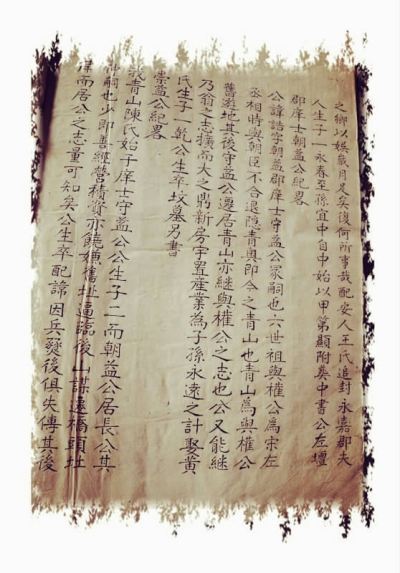 之鄉以娛歲月足矣復何所事哉配安人王氏追封永嘉郡夫
人生子一永春至孫宜中自中始以甲第顯附葬中書公左壇
郡庠士朝益公紀畧
公諱誥字朝益郡庠士守益公冢嗣也六世祖與權公為宋左
丞相時與朝臣不合退隱青奧即今之青山也青山為與權公
舊遊地其後守益公遷居青山亦繼與權公之志也公又能繼
乃翁之志擴而大之鼎新房宇置產業為子孫永遠之計娶黃
氏生子一乾公生卒坟墓另書
崇益公紀畧
我青山陳氏始于庠士守益公公生子二而朝益公居長公其
仲嗣也少即善經營積資亦饒嫌舊址逼臨後山謀遷橋頭址
肆而居公之志量可知矣公生卒配諦因兵燹後俱失傳其後